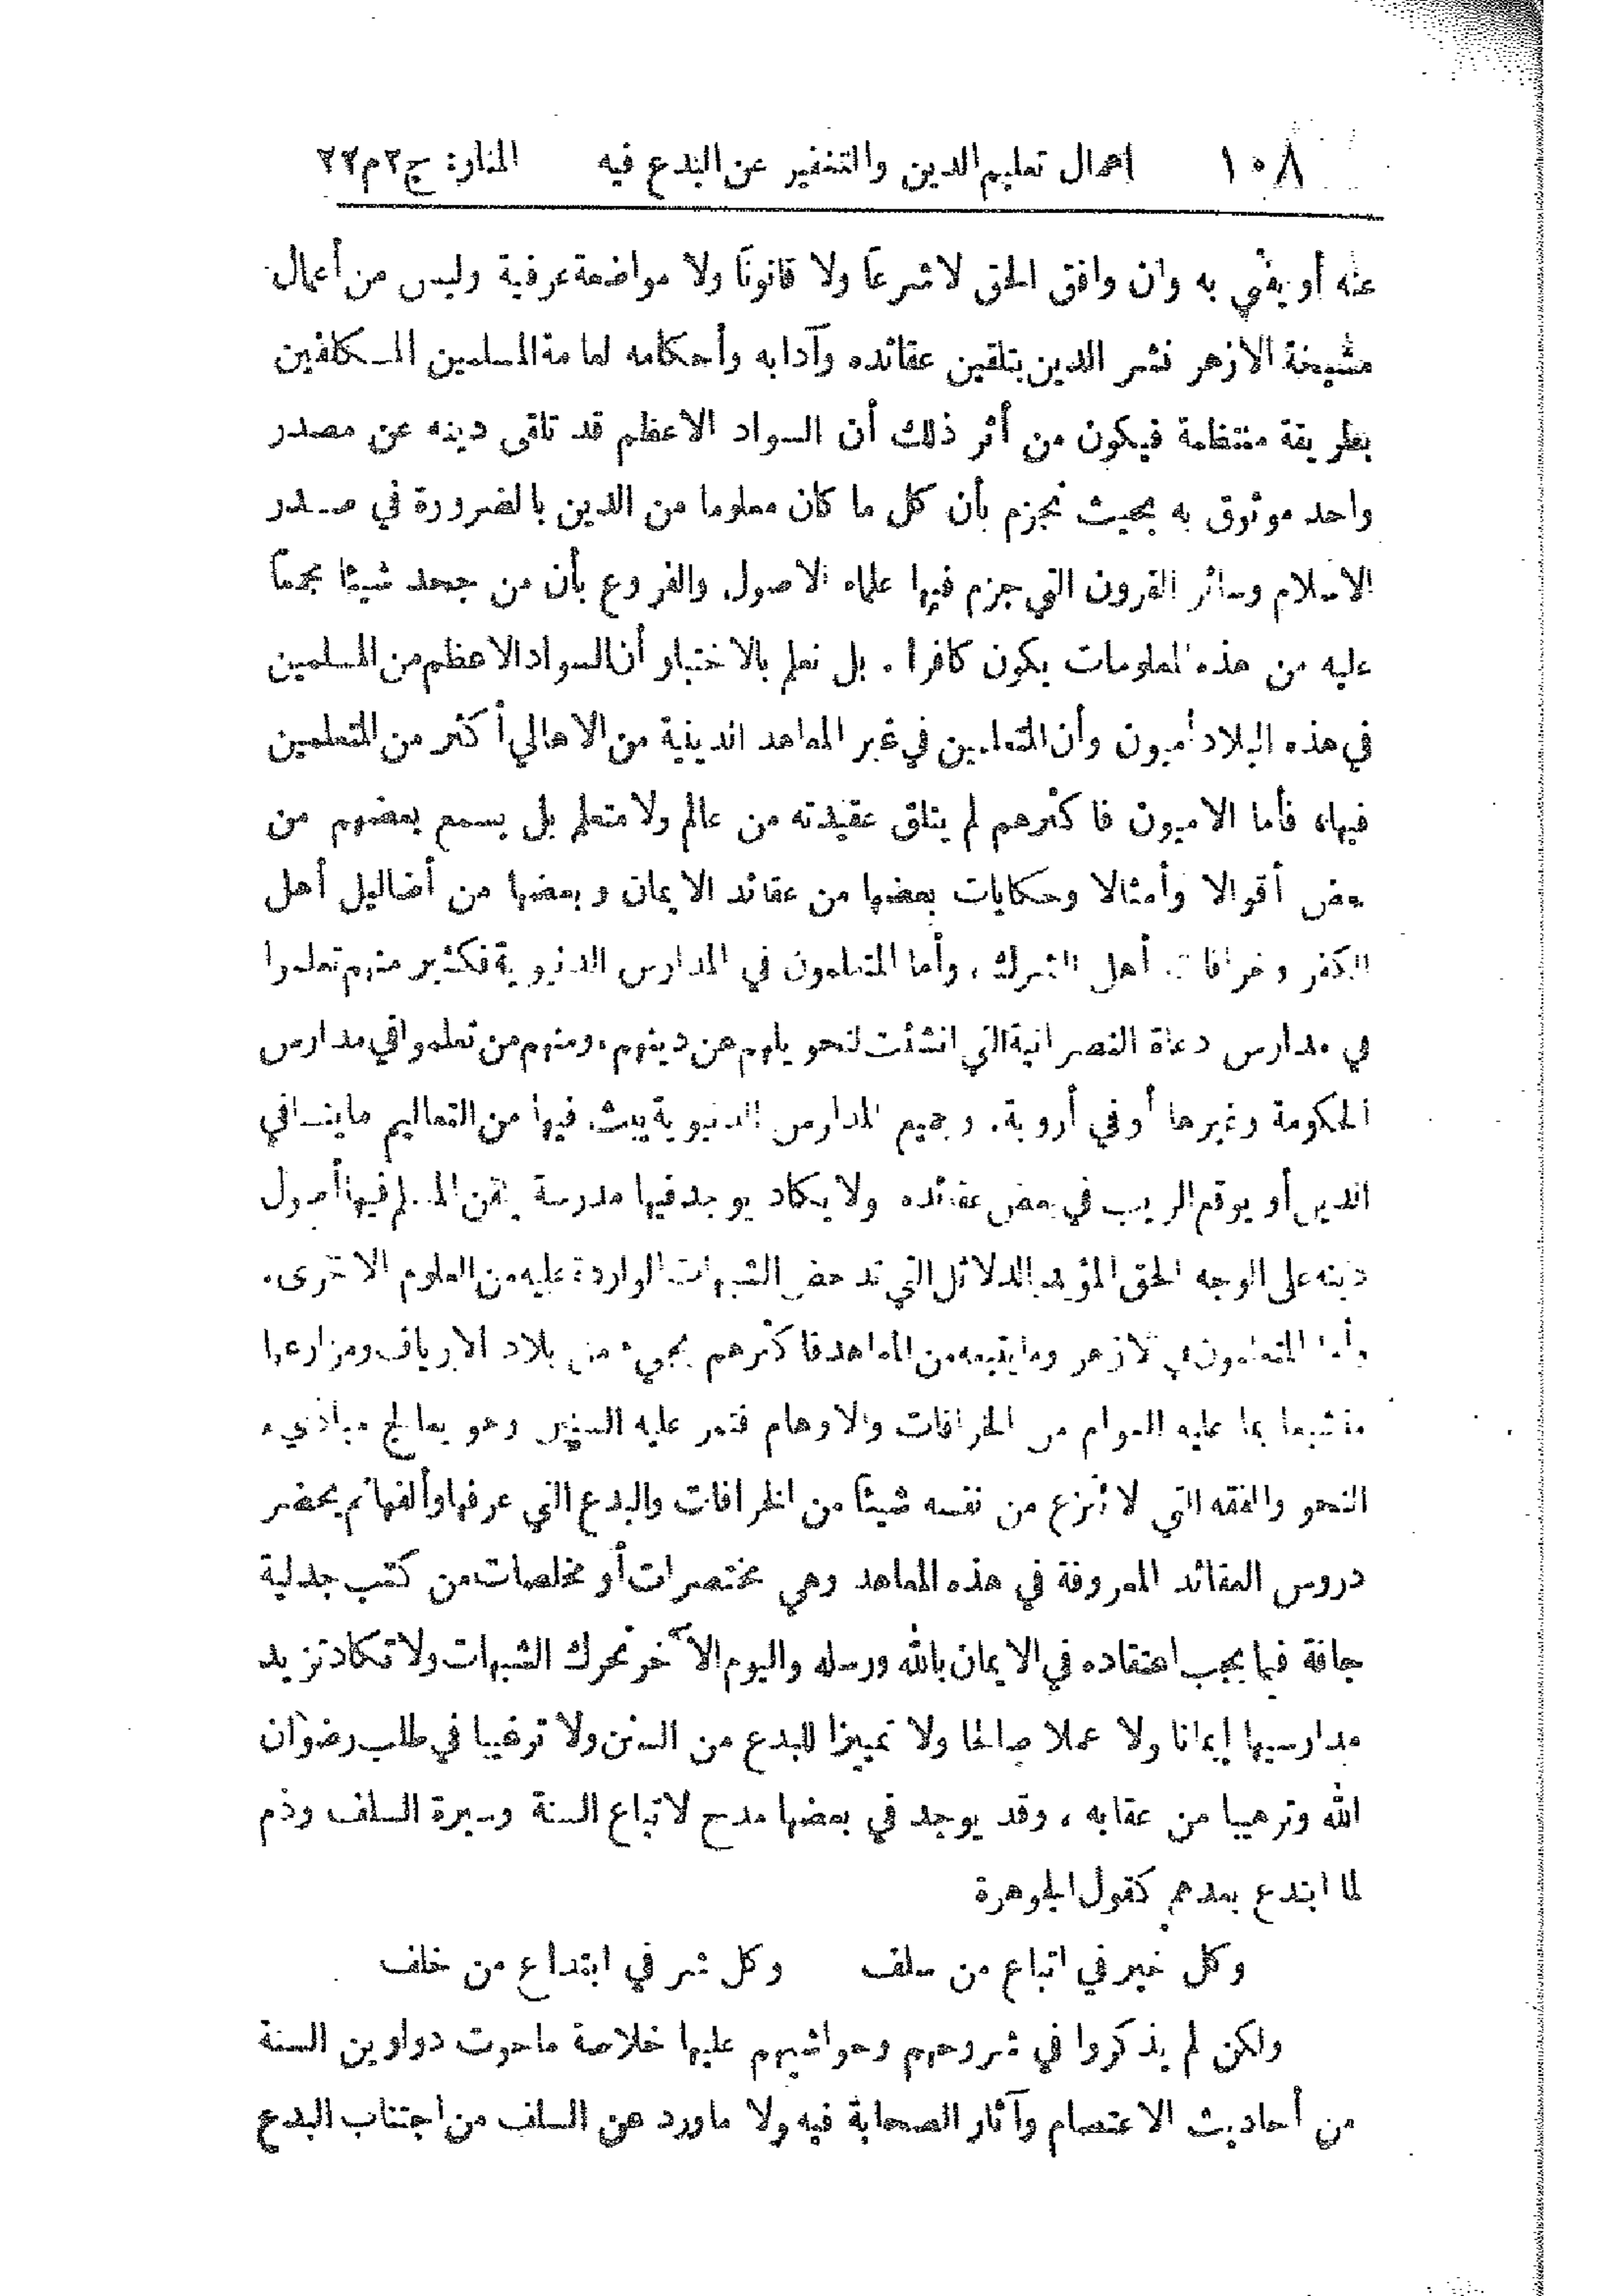 ١٠٨ اهمال تعليم الدين والتنفير عن البدع فيه المنار: ج٢م٢٢
عنه أو يفتي به وان وافق الحق لا شرعاً ولا قانوناً ولا مواضعة عرفية وليس من أعمال
مشيخة الازهر نشر الدين بتلقين عقائده وآدابه وأحكامه لعامة المسلمين المكلفين
بطريقة منتظمة فيكون من أثر ذلك أن السواد الاعظم قد تلقى دينه عن مصدر
واحد موثوق به بحيث نجزم بأن كل ما كان معلوما من الدين بالضرورة في صدر
الاسلام وسائر القرون التي جزم فيها علماء الاصول والفروع بأن من جحد شيئا مجمعاً
عليه من هذه المعلومات يكون كافرا . بل نعلم بالاختبار أن السواد الاعظم من المسلمين
في هذه البلاد أميون وأن المتعلمين في غير المعاهد الدينية من الاهالي أكثر من المتعلمين
فيها، فأما الاميون فاكثرهم لم يتلق عقيدته من عالم ولا متعلم بل يسمع بعضهم من
بعض أقوالا وأمثالا وحكايات بعضها من عقائد الايمان وبعضها من أضاليل أهل
الكفر وخرافات أهل الشرك ، وأما المتعلمون في المدارس الدنيوية فكثير منهم تعلموا
في مدارس دعاة النصرانية التي انشئت لتحويلهم عن دينهم، ومنهم من تعلموا في مدارس
الحكومة وغيرها أو في أروبة. وجميع المدارس الدنيوية يبث فيها من التعاليم ما ينافي
الدين أو يوقع الريب في بعض عقائده ولا يكاد يوجد فيها مدرسة يلقن المسلم فيها أصول
دينه على الوجه الحق المؤيد بالدلائل التي تدحض الشبهات الواردة عليه من العلوم الاخرى.
وأما المتعلمون في الازهر وما يتبعه من المعاهد فاكثرهم يجيء من بلاد الارياف ومزارعها
متشبعا بما عليه العوام من الخرافات والاوهام فتمر عليه السنين وهو يعالج مباديء
النحو والفقه التي لا تنزع من نفسه شيئاً من الخرافات والبدع التي عرفها وألفها ثم يحضر
دروس العقائد المعروفة في هذه المعاهد وهي مختصرات أو مخلصات من كتب جدلية
جافة فيما يجب اعتقاده في الايمان بالله ورسله واليوم الآخر تحرك الشبهات ولا تكاد تزيد
مدارسيها إيمانا ولا عملا صالحا ولا تمييزا للبدع من السنن ولا ترغيبا في طلب رضوان
الله وترهيبا من عقابه ، وقد يوجد في بعضها مدح لاتباع السنة وسيرة السلف وذم
لما ابتدع بعدهم كقول الجوهرة
وكل خير في اتباع من سلف وكل شر في ابتداع من خلف
ولكن لم يذكروا في شروحهم وحواشيهم عليها خلاصة ما حوت دواوين السنة
من أحاديث الاعتصام وآثار الصحابة فيه ولا ماورد عن السلف من اجتناب البدع